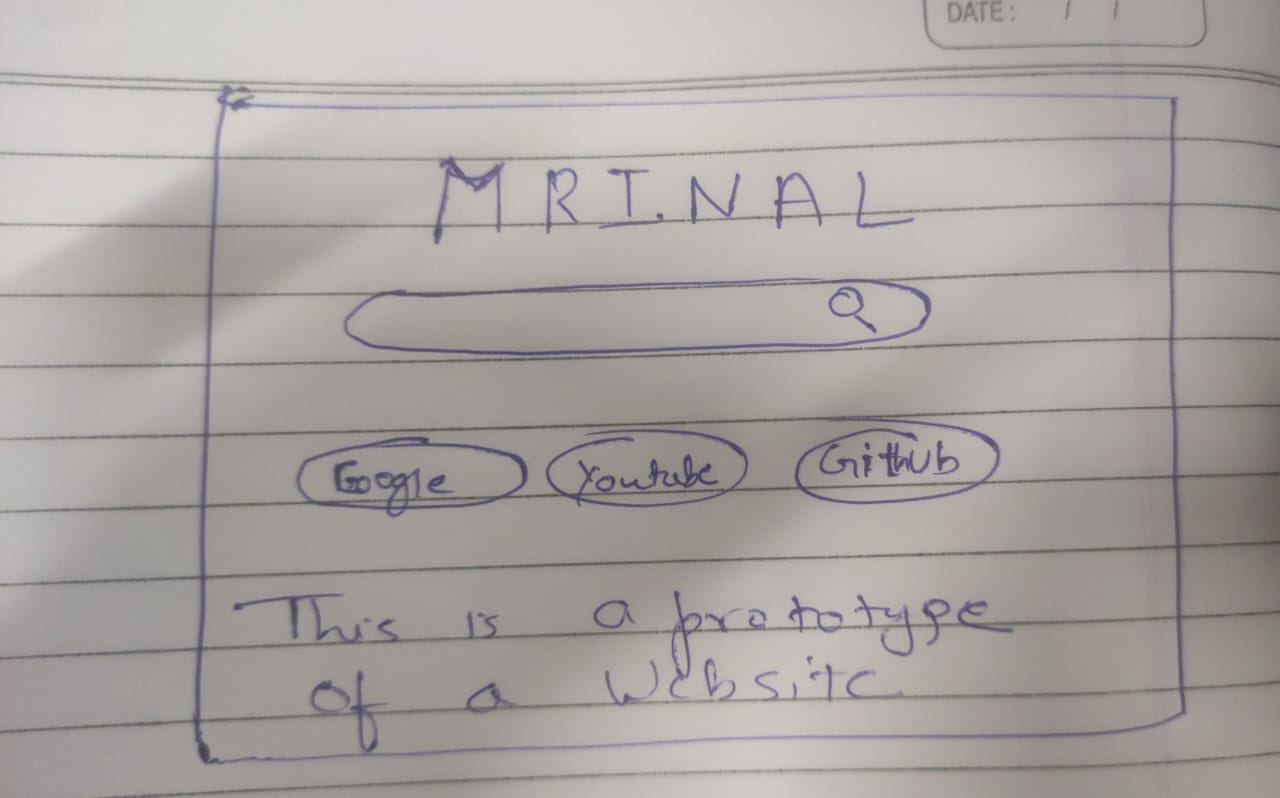 DATE: / /
MRINAL
Google Youtube Github
This is a prototype
of a Website